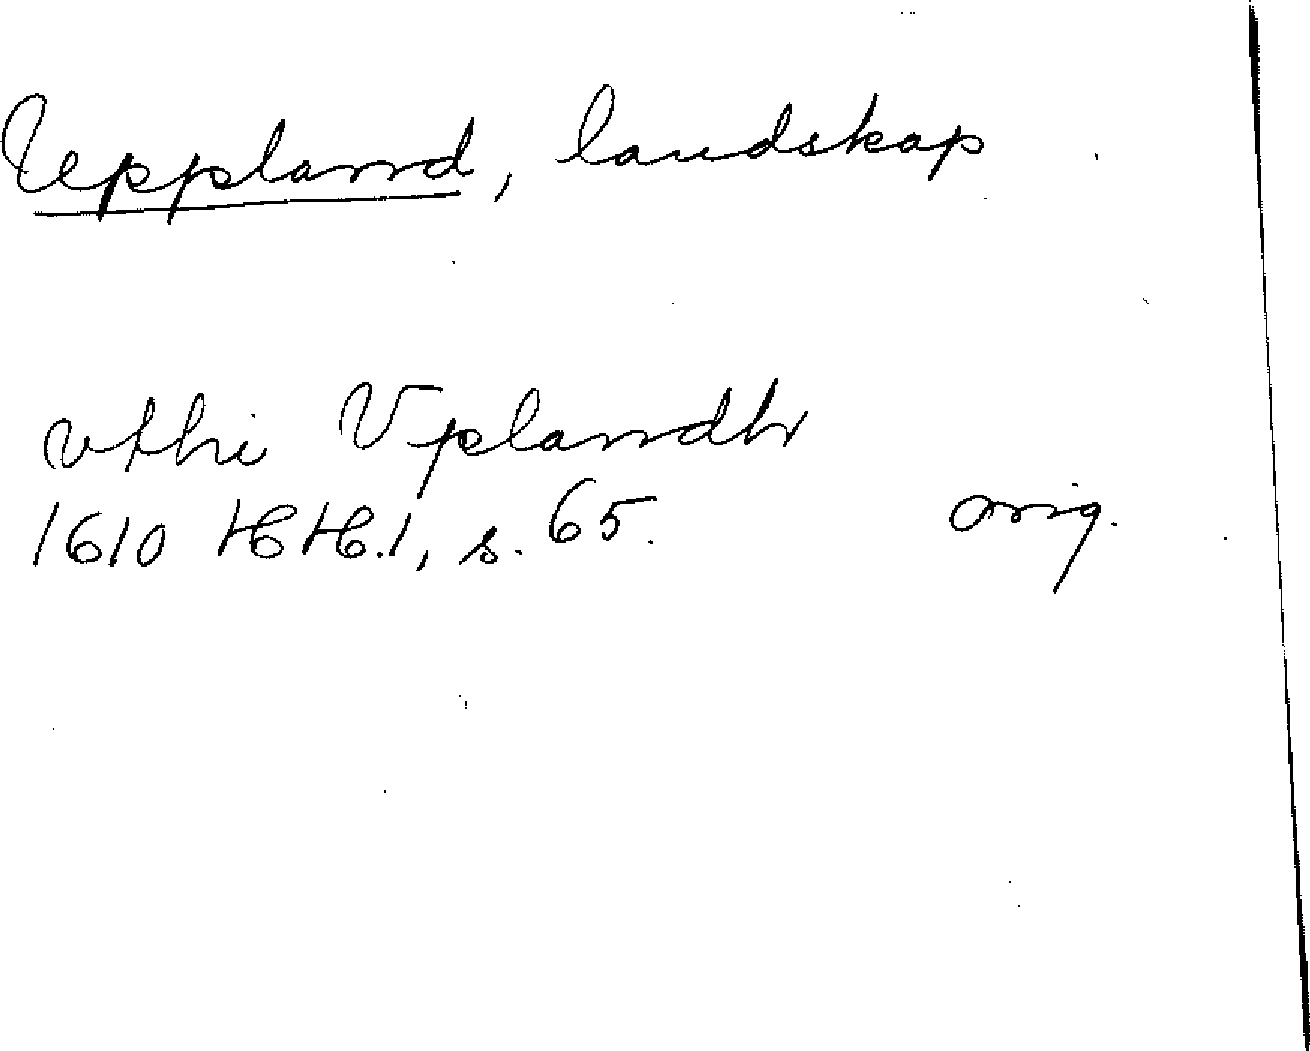 Uppland, landskap
vthi Vplandh
1610 HH.1, s. 65. orig.